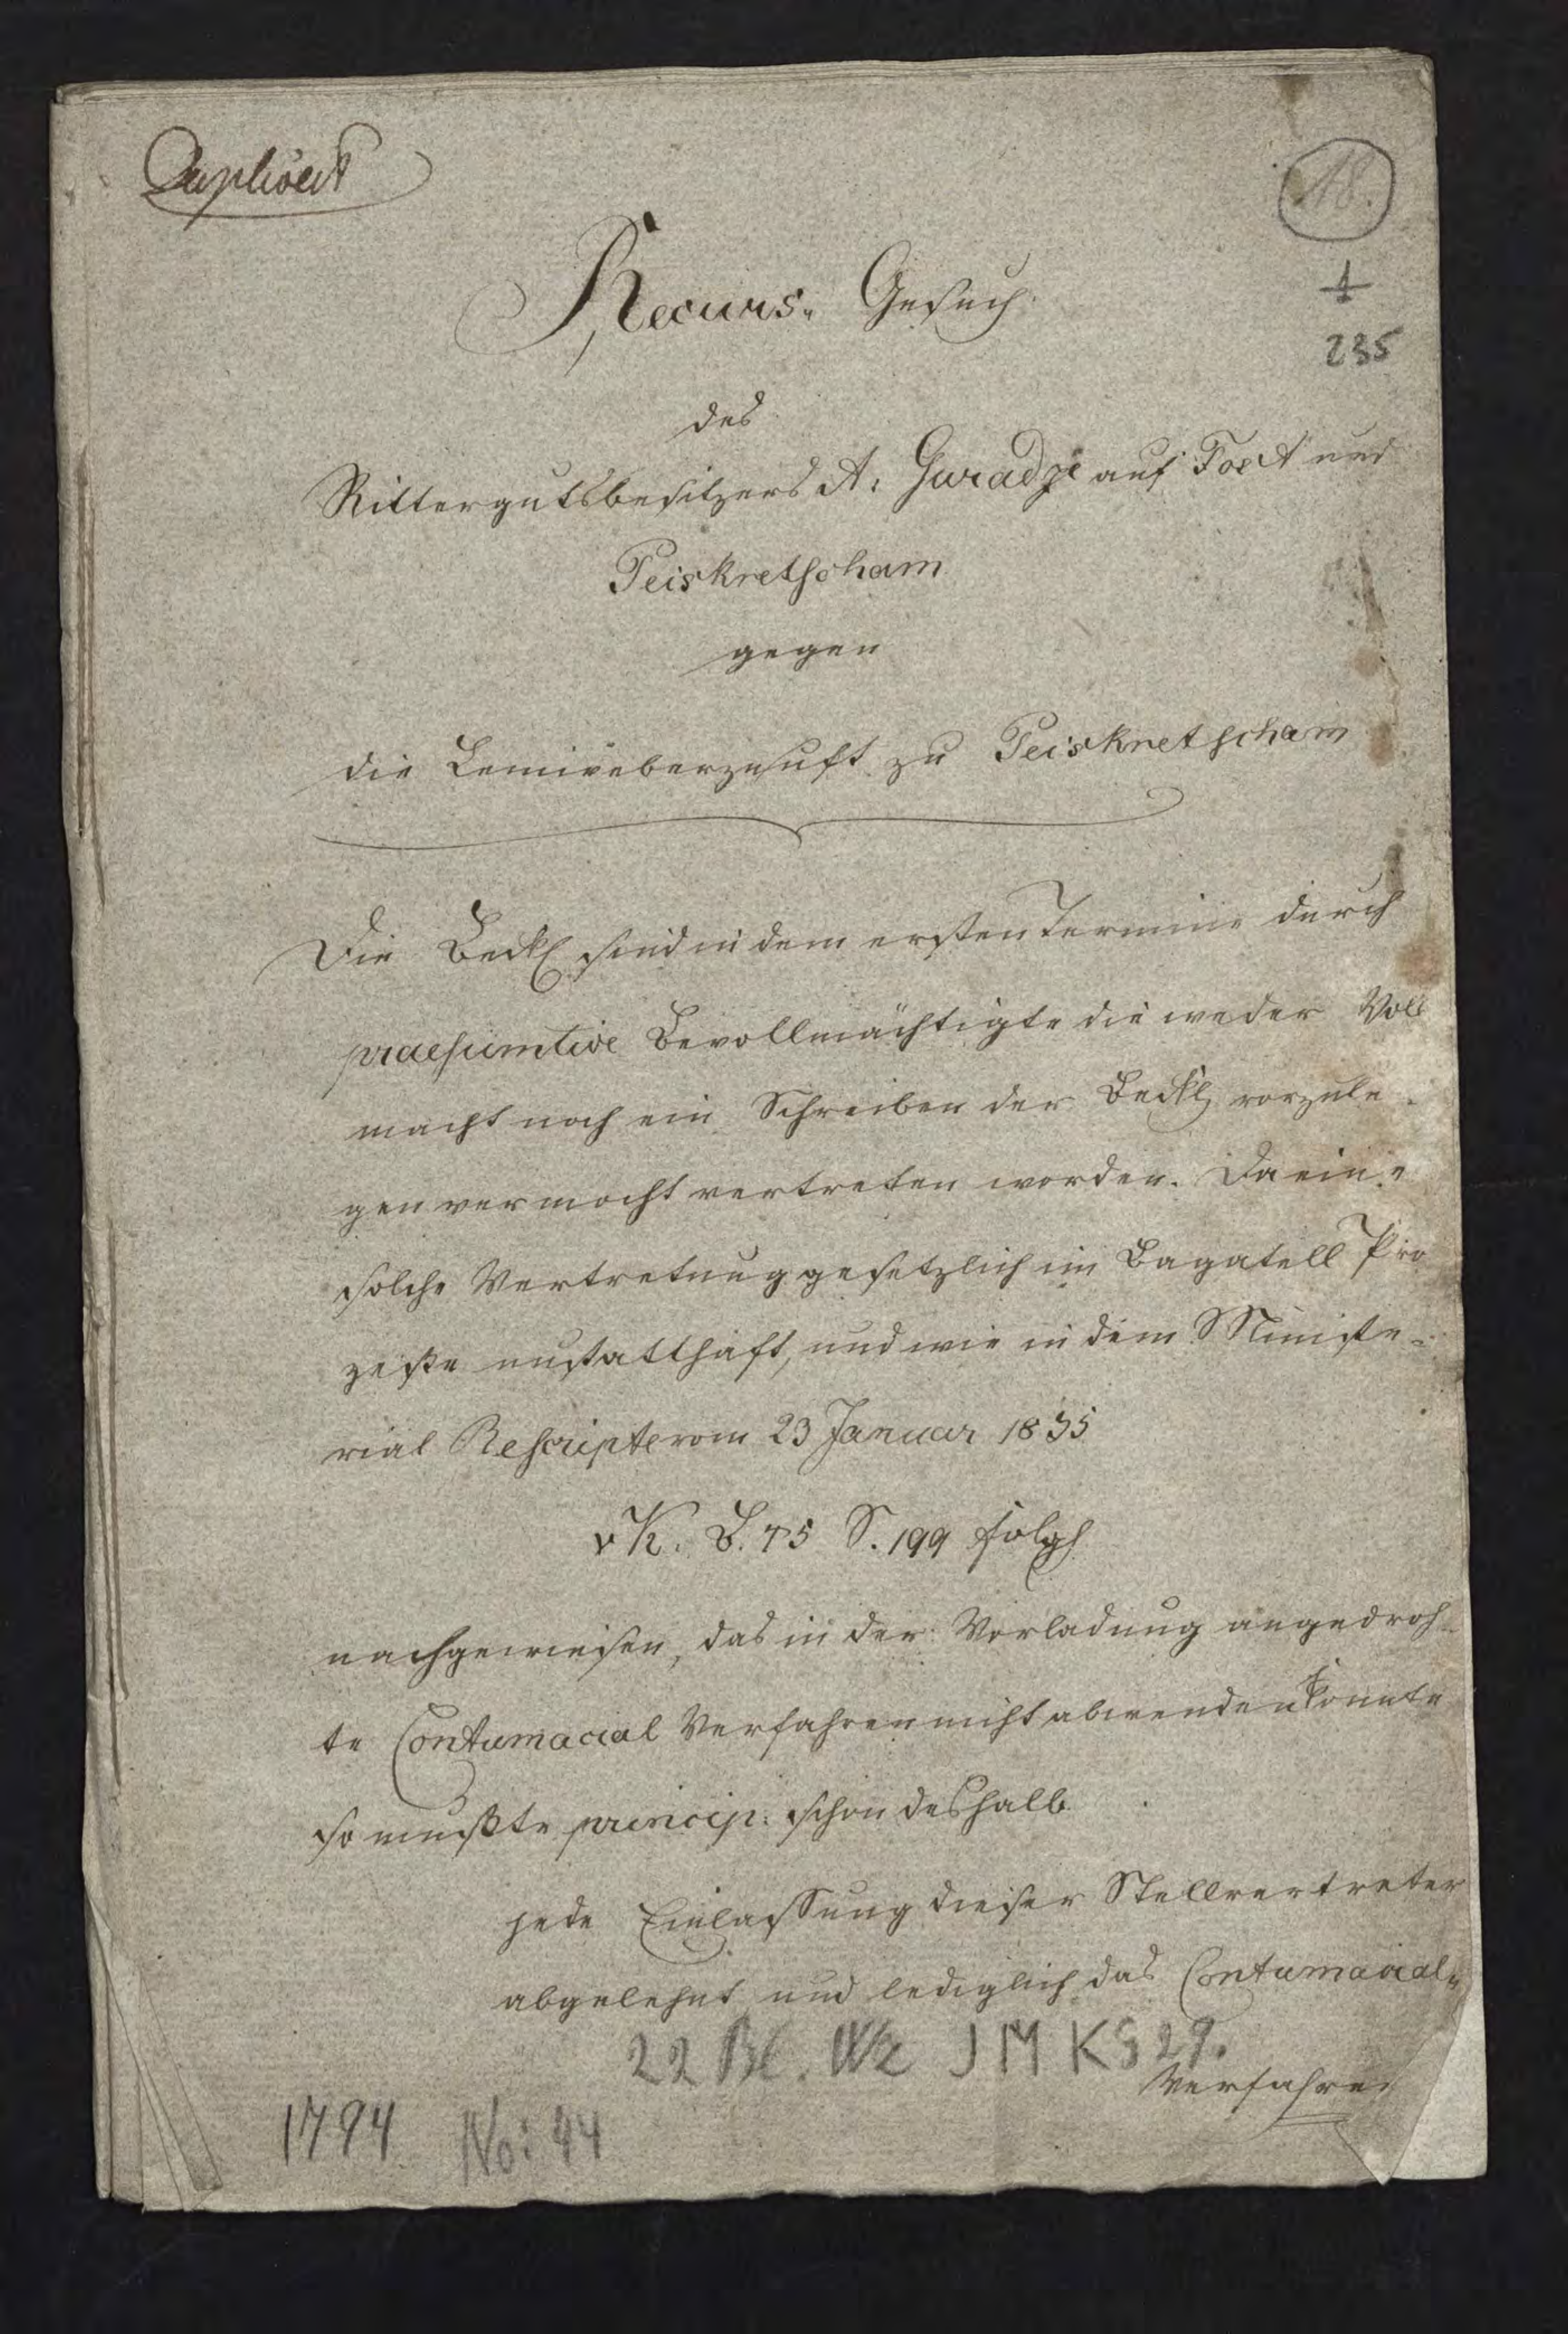 Duplicat
18.
1
235
Recurs-Gesuch
des
Rittergutsbesitzers A: Guradze auf Tost und
Peiskretscham
gegen
die Leinweberzunft zu Peiskretscham
Die Beckl sind in dem ersten Termine durch
praesumtive Bevollmächtigte die weder Voll
macht noch ein Schreiben der Beckl vorzule-
gen vermocht vertreten worden. Da eine
solche Vertretung gesetzlich im Bagatell Pro
zeße unstatthaft, und wie in dem Ministe-
rial Rescripte vom 23 Januar 1835
v K. B. 45 S. 199 folg
nachgewiesen, das in der Vorladung angedroh-
te Contumacial Verfahren nicht abwenden konnte
so mußte princip: schon deshalb
jede Einlassung dieser Stellvertreter
abgelehnt und lediglich das Contumacial-
22 Bl. JM KG 29.
Verfahren
1794 No: 44